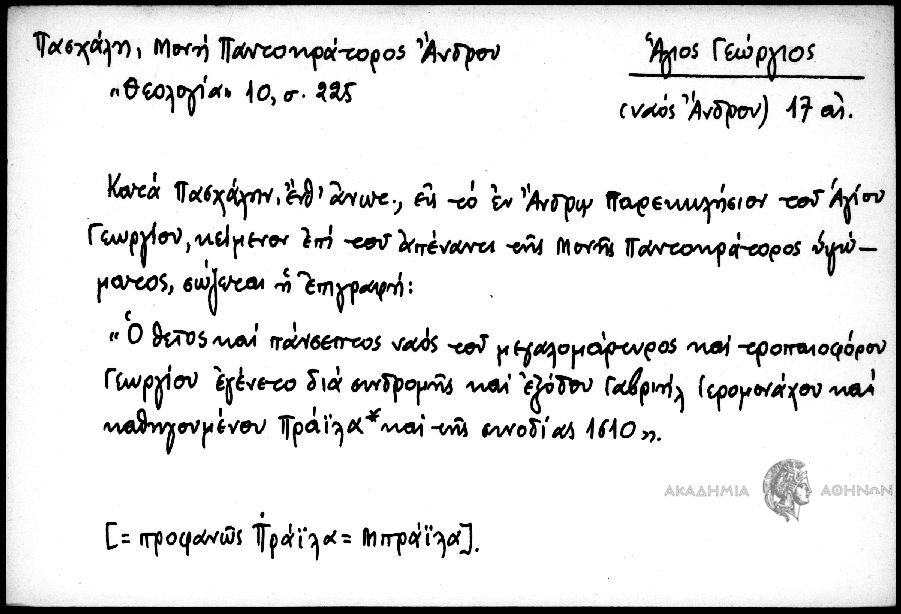 Πασχάλη, Μονή Παντοκράτορος Ἄνδρου
«Θεολογία» 10, σ. 225
Ἅγιος Γεώργιος
(ναός Ἄνδρου) 17 αἰ.
Κατά Πασχάλην, ἔνθ' ἄνωτ., εἰς τό ἐν Ἄνδρῳ παρεκκλήσιον τοῦ Ἁγίου
Γεωργίου, κείμενον ἐπί τοῦ ἀπέναντι τῆς Μονῆς Παντοκράτορος ὑψώ-
ματος, σώζεται ἡ ἐπιγραφή:
«Ὁ θεῖος καί πάνσεπτος ναός τοῦ μεγαλομάρτυρος καί τροπαιοφόρου
Γεωργίου ἐγένετο διά συνδρομῆς καί ἐξόδου Γαβριήλ ἱερομονάχου καί
καθηγουμένου Πράϊλα* καί τῆς συνοδίας 1610».
[= προφανῶς Π̇ράϊλα = Μπράϊλα].
ΑΚΑΔΗΜΙΑ ΑΘΗΝΩΝ